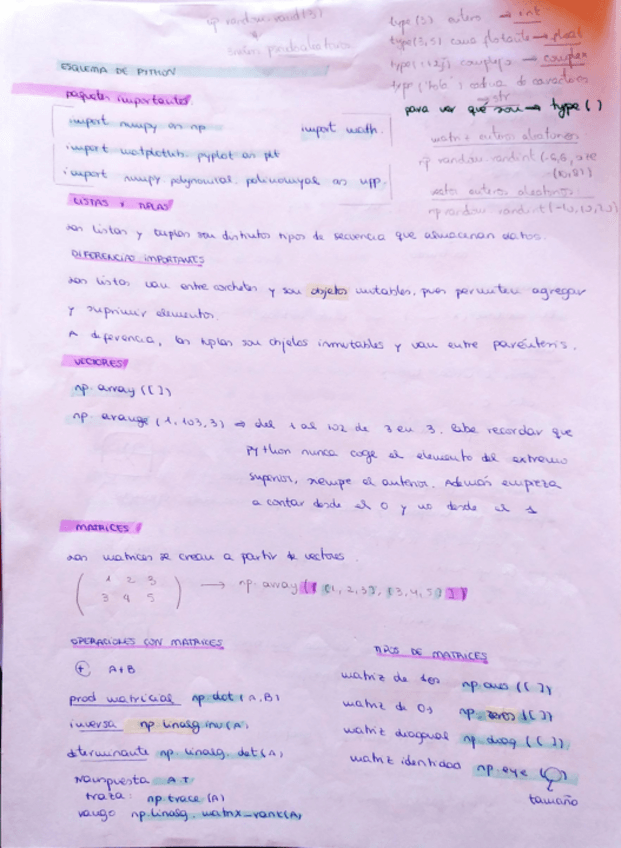 np random.rand(3)
type(3) entero → int
type(3,5) coma flotante → float
números pseudoaleatorios
type(1+2j) complejo → complex
type('hola') cadena de caracteres
str
ESQUEMA DE PYTHON
para ver qué son → type()
paquetes importantes
import numpy as np
import math.
import matplotlib.pyplot as plt
import numpy.polynomial.polinomyal as npp.
matriz enteros aleatorios
np random.randint(-5,5,
vector enteros aleatorios:
np random randint(-10,10,
LISTAS Y TUPLAS
Las listas y tuplas son distintos tipos de secuencia que almacenan datos.
DIFERENCIAS IMPORTANTES
Las listas van entre corchetes y son objetos mutables, pues permiten agregar
y suprimir elementos.
A diferencia, las tuplas son objetos inmutables y van entre paréntesis.
VECTORES
np.array([])
np.arange(1,103,3) ⇒ del 1 al 102 de 3 en 3. Cabe recordar que
Python nunca coge el elemento del extremo
superior, siempre el anterior. Además empieza
a contar desde el 0 y no desde el 1
MATRICES
Las matrices se crean a partir de vectores.
1 2 3
3 4 5
→ np.array([[1,2,3],[3,4,5]])
OPERACIONES CON MATRICES
+ A+B
prod matricial np.dot(A,B)
inversa np.linalg.inv(A)
determinante np.linalg.det(A)
transpuesta A.T
traza: np.trace(A)
rango np.linalg.matrix_rank(A)
TIPOS DE MATRICES
matriz de 1os np.ones([])
matriz de 0s np.zeros([])
matriz diagonal np.diag([])
matriz identidad np.eye()
tamaño